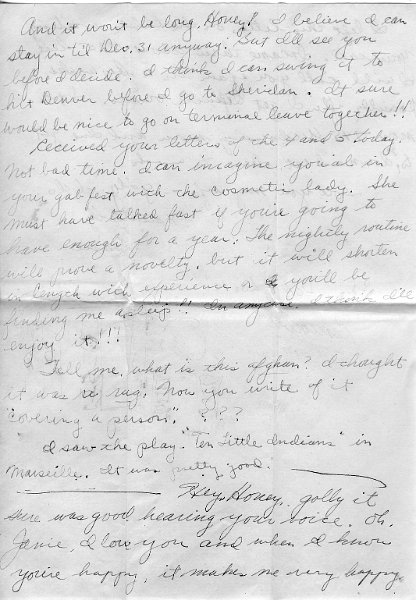 And it won't be long, Honey! I believe I can
stay in 'til Dec. 31 anyway. But I'll see you
before I decide. I think I can swing it to
hit Denver before I go to Sheridan. It sure
would be nice to go on terminal leave together!!
Received your letters of the 4 and 5 today.
Not bad time. I can imagine you all in
your gab fest with the cosmetic lady. She
must have talked fast if you're going to
have enough for a year. The nightly routine
will prove a novelty, but it will shorten
in length with experience or you'll be
finding me asleep!! In anycase, I think I'll
enjoy it!!!
Tell me, what is this afghan? I thought
it was a rug. Now you write of it
"covering a person". ???
I saw the play "Ten Little Indians" in
Marseille. It was pretty good.
Hey Honey, golly it
sure was good hearing your voice. Oh,
Janie, I love you and when I know
you're happy, it makes me very happy.